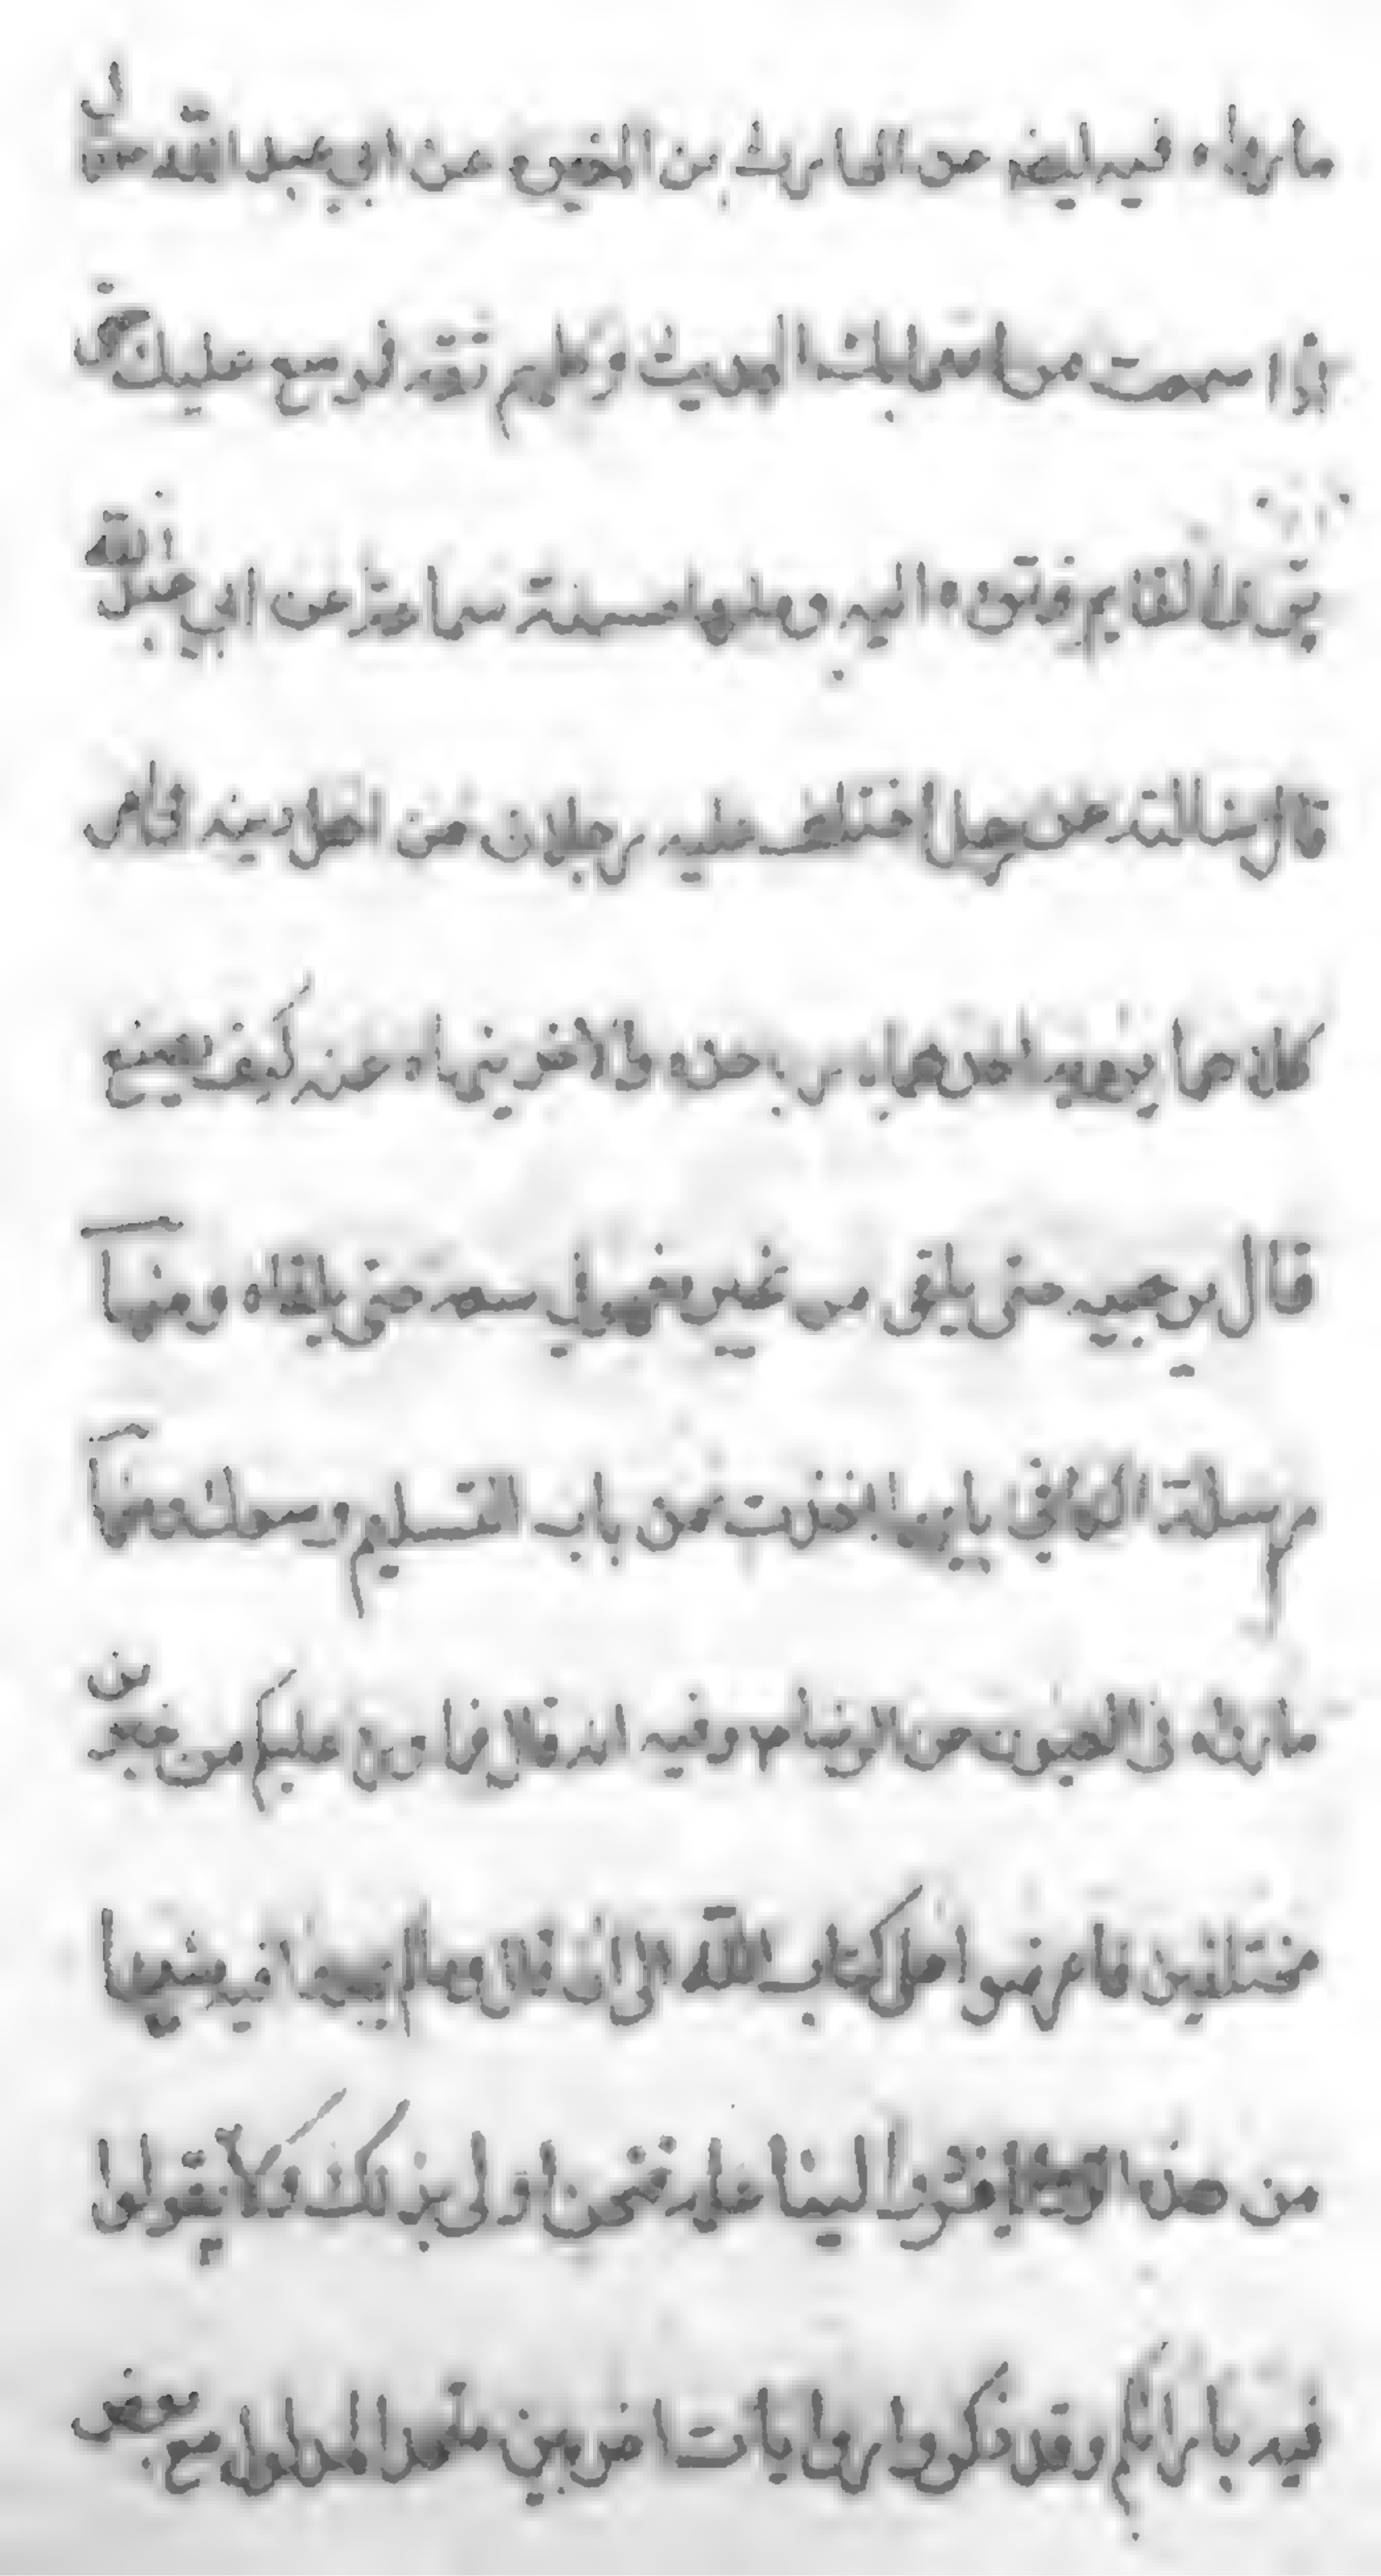 ما رواه فيه ايضا عن الحارث بن المغيرة عن ابي عبد الله قال
اذا سمعت من اصحابك الحديث وكلهم ثقة فموسع عليك حتى
ترى القائم فترده اليه ومنها حسنة سماعة عن ابي عبد الله
قال سالته عن رجل اختلف عليه رجلان من اهل دينه في امر
كلاهما يرويه احدهما يامر باخذه والاخر ينهاه عنه كيف يصنع
قال يرجيه حتى يلقى من يخبره فهو في سعه حتى يلقاه ومنها
مرسلة الكافي بايهما اخذت من باب التسليم وسعك ومنها
ما رواه في العيون عن الرضا م وفيه انه قال فما ورد عليكم من خبرين
مختلفين فاعرضوا على كتاب الله الى ان قال وما لم تجدوا فيه شيئا
من هذه فردوا الينا علمه فنحن اولى بذلك ولا تقولوا
فيه بارائكم وقد ذكروا روايات اخر بين متحد المدلول مع بعض